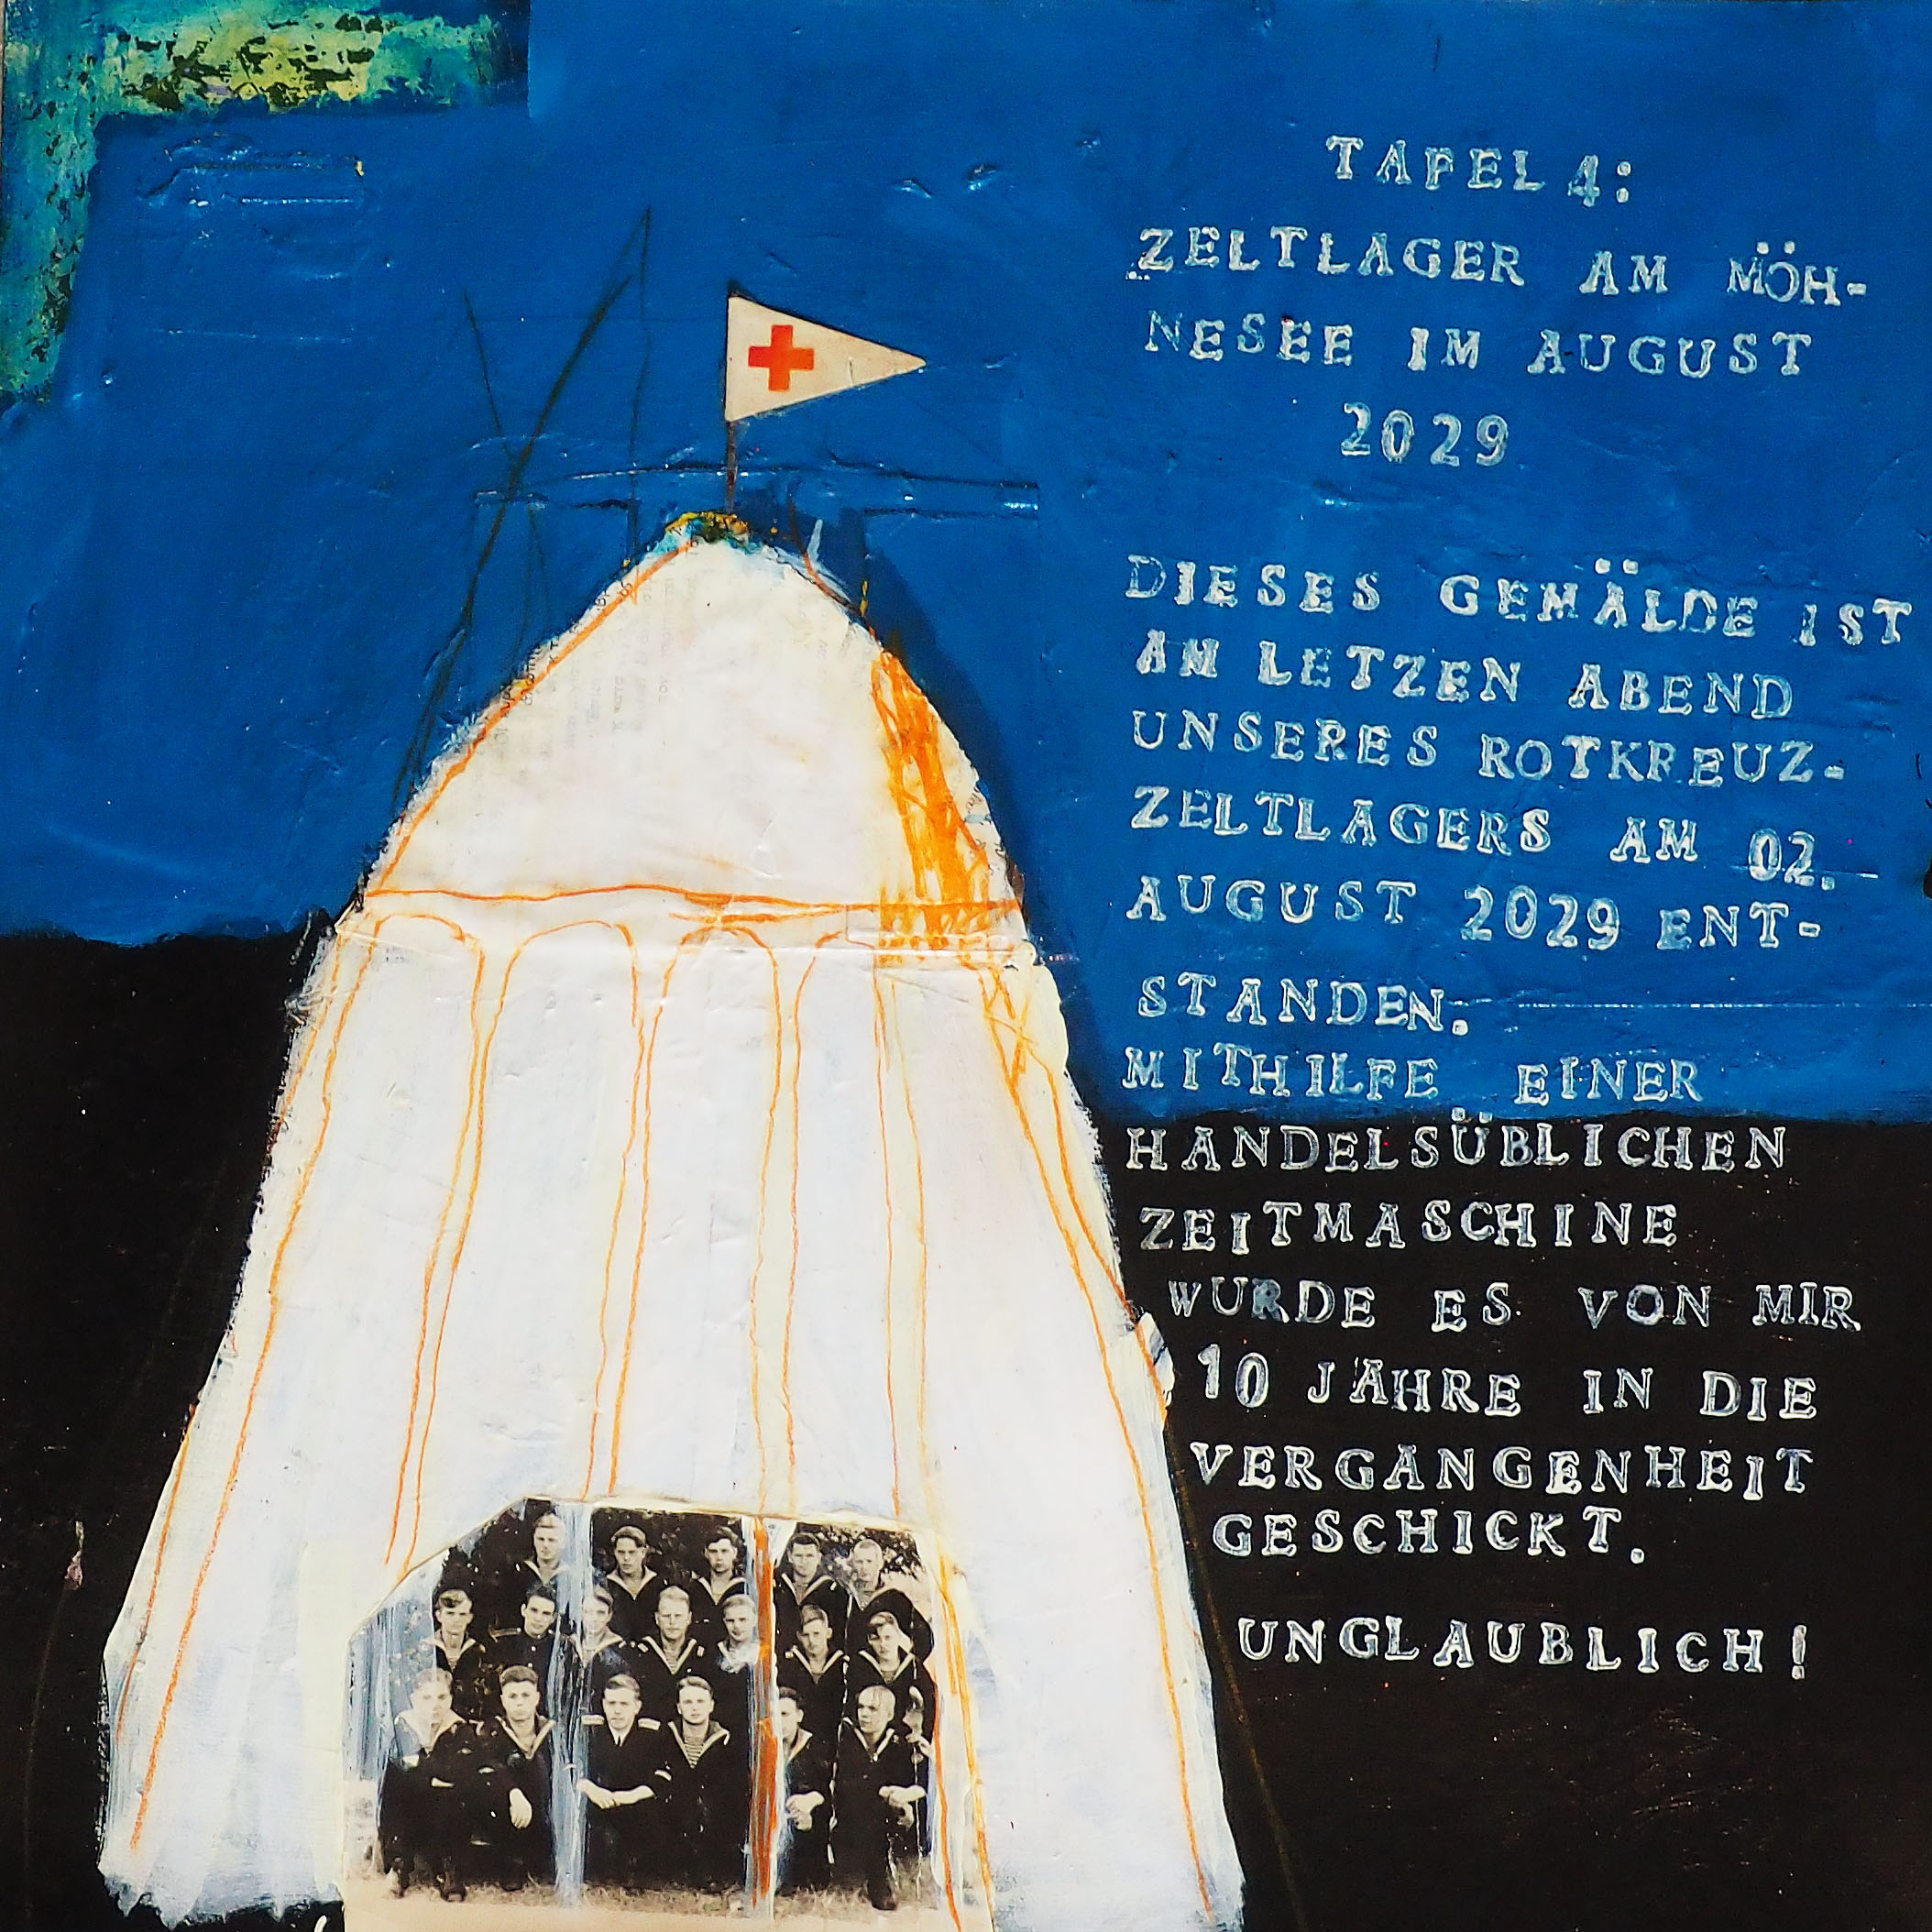 TAFEL 4:
ZELTLAGER AM MÖH-
NESEE IM AUGUST
2029
DIESES GEMÄLDE IST
AM LETZEN ABEND
UNSERES ROTKREUZ-
ZELTLAGERS AM 02.
AUGUST 2029 ENT-
STANDEN.
MITHILFE EINER
HANDELSÜBLICHEN
ZEITMASCHINE
WURDE ES VON MIR
10 JAHRE IN DIE
VERGANGENHEIT
GESCHICKT.
UNGLAUBLICH!